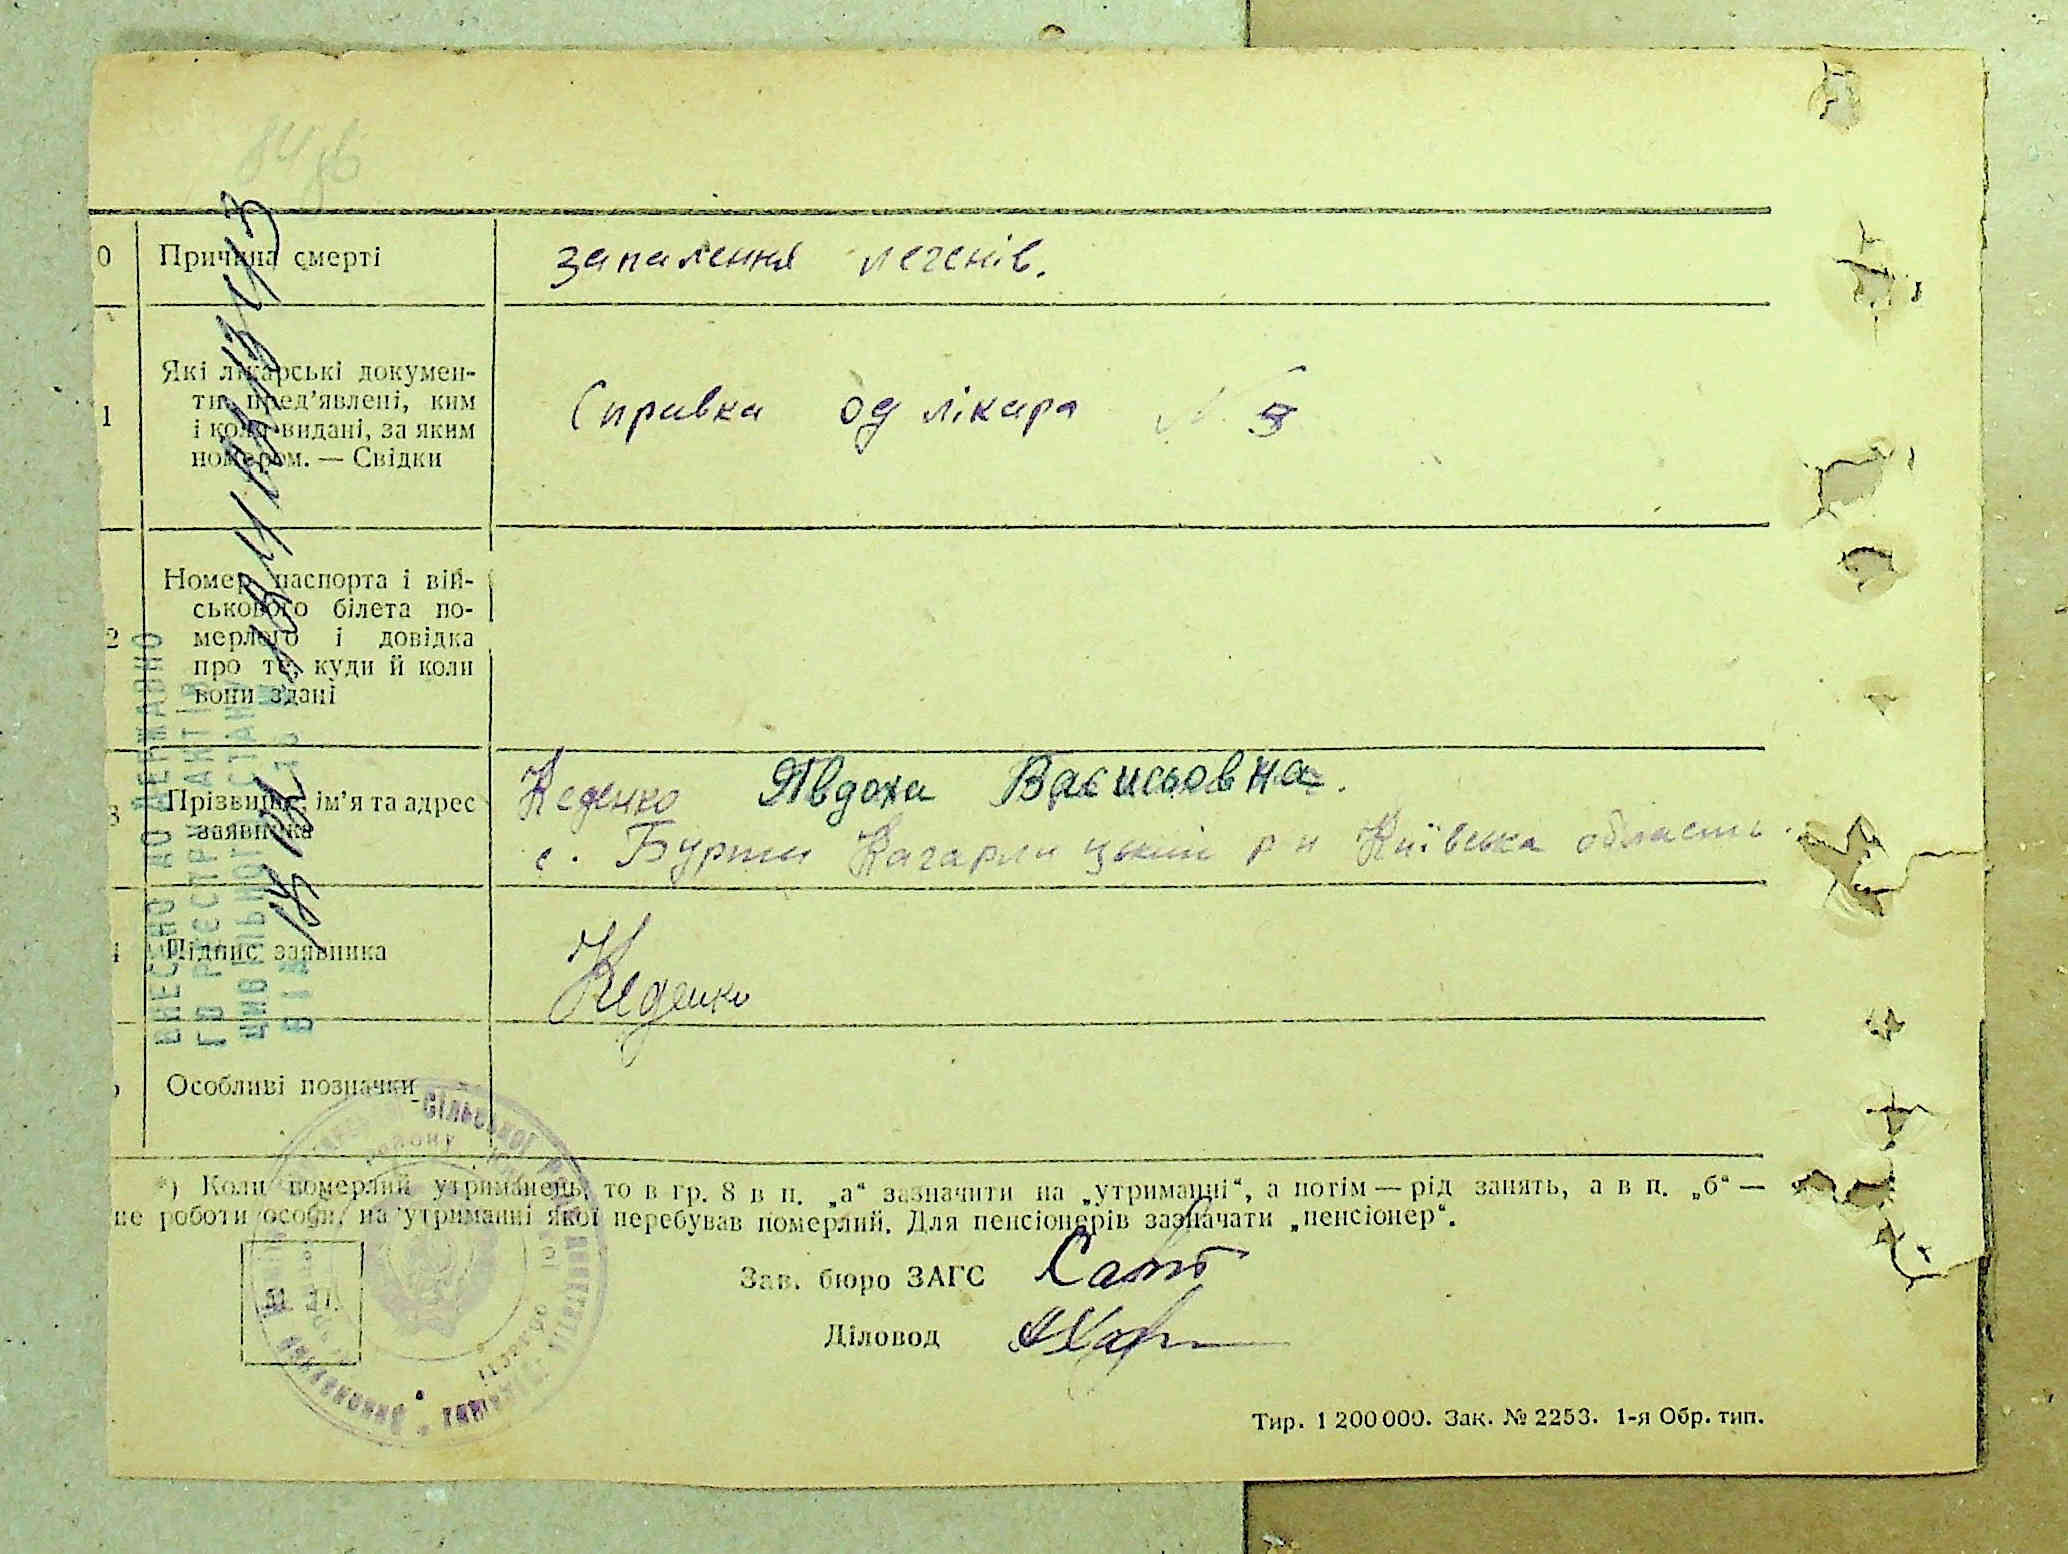 0 Причина смерті запалення легенів.
Які лікарські докумен-
ти пред'явлені, ким
1 і коли видані, за яким Справка од лікара N
номером. — Свідки
Номер паспорта і вій-
ськового білета по-
2 мерлого і довідка
про те, куди й коли
вони здані
3 Прізвище, ім'я та адрес Кеденко Явдоха Васильовна.
заявника с. Бурти Кагарлицький р н Київська область.
4 Підпис заявника Кеденко
Особливі позначки
*) Коли померлий утриманець, то в гр. 8 в п. „а“ зазначити на „утриманні“, а потім — рід занять, а в п. „б“ —
це роботи особи, на утриманні якої перебував померлий. Для пенсіонерів зазначати „пенсіонер“.
Зав. бюро ЗАГС
Діловод
Тир. 1 200 000. Зак. № 2253. 1-я Обр. тип.
ВНЕСЕНО ДО ДЕРЖАВНО
ГО РЕЄСТРУ АКТІВ
ЦИВІЛЬНОГО СТАНУ
ВІД
Сільської
району
області